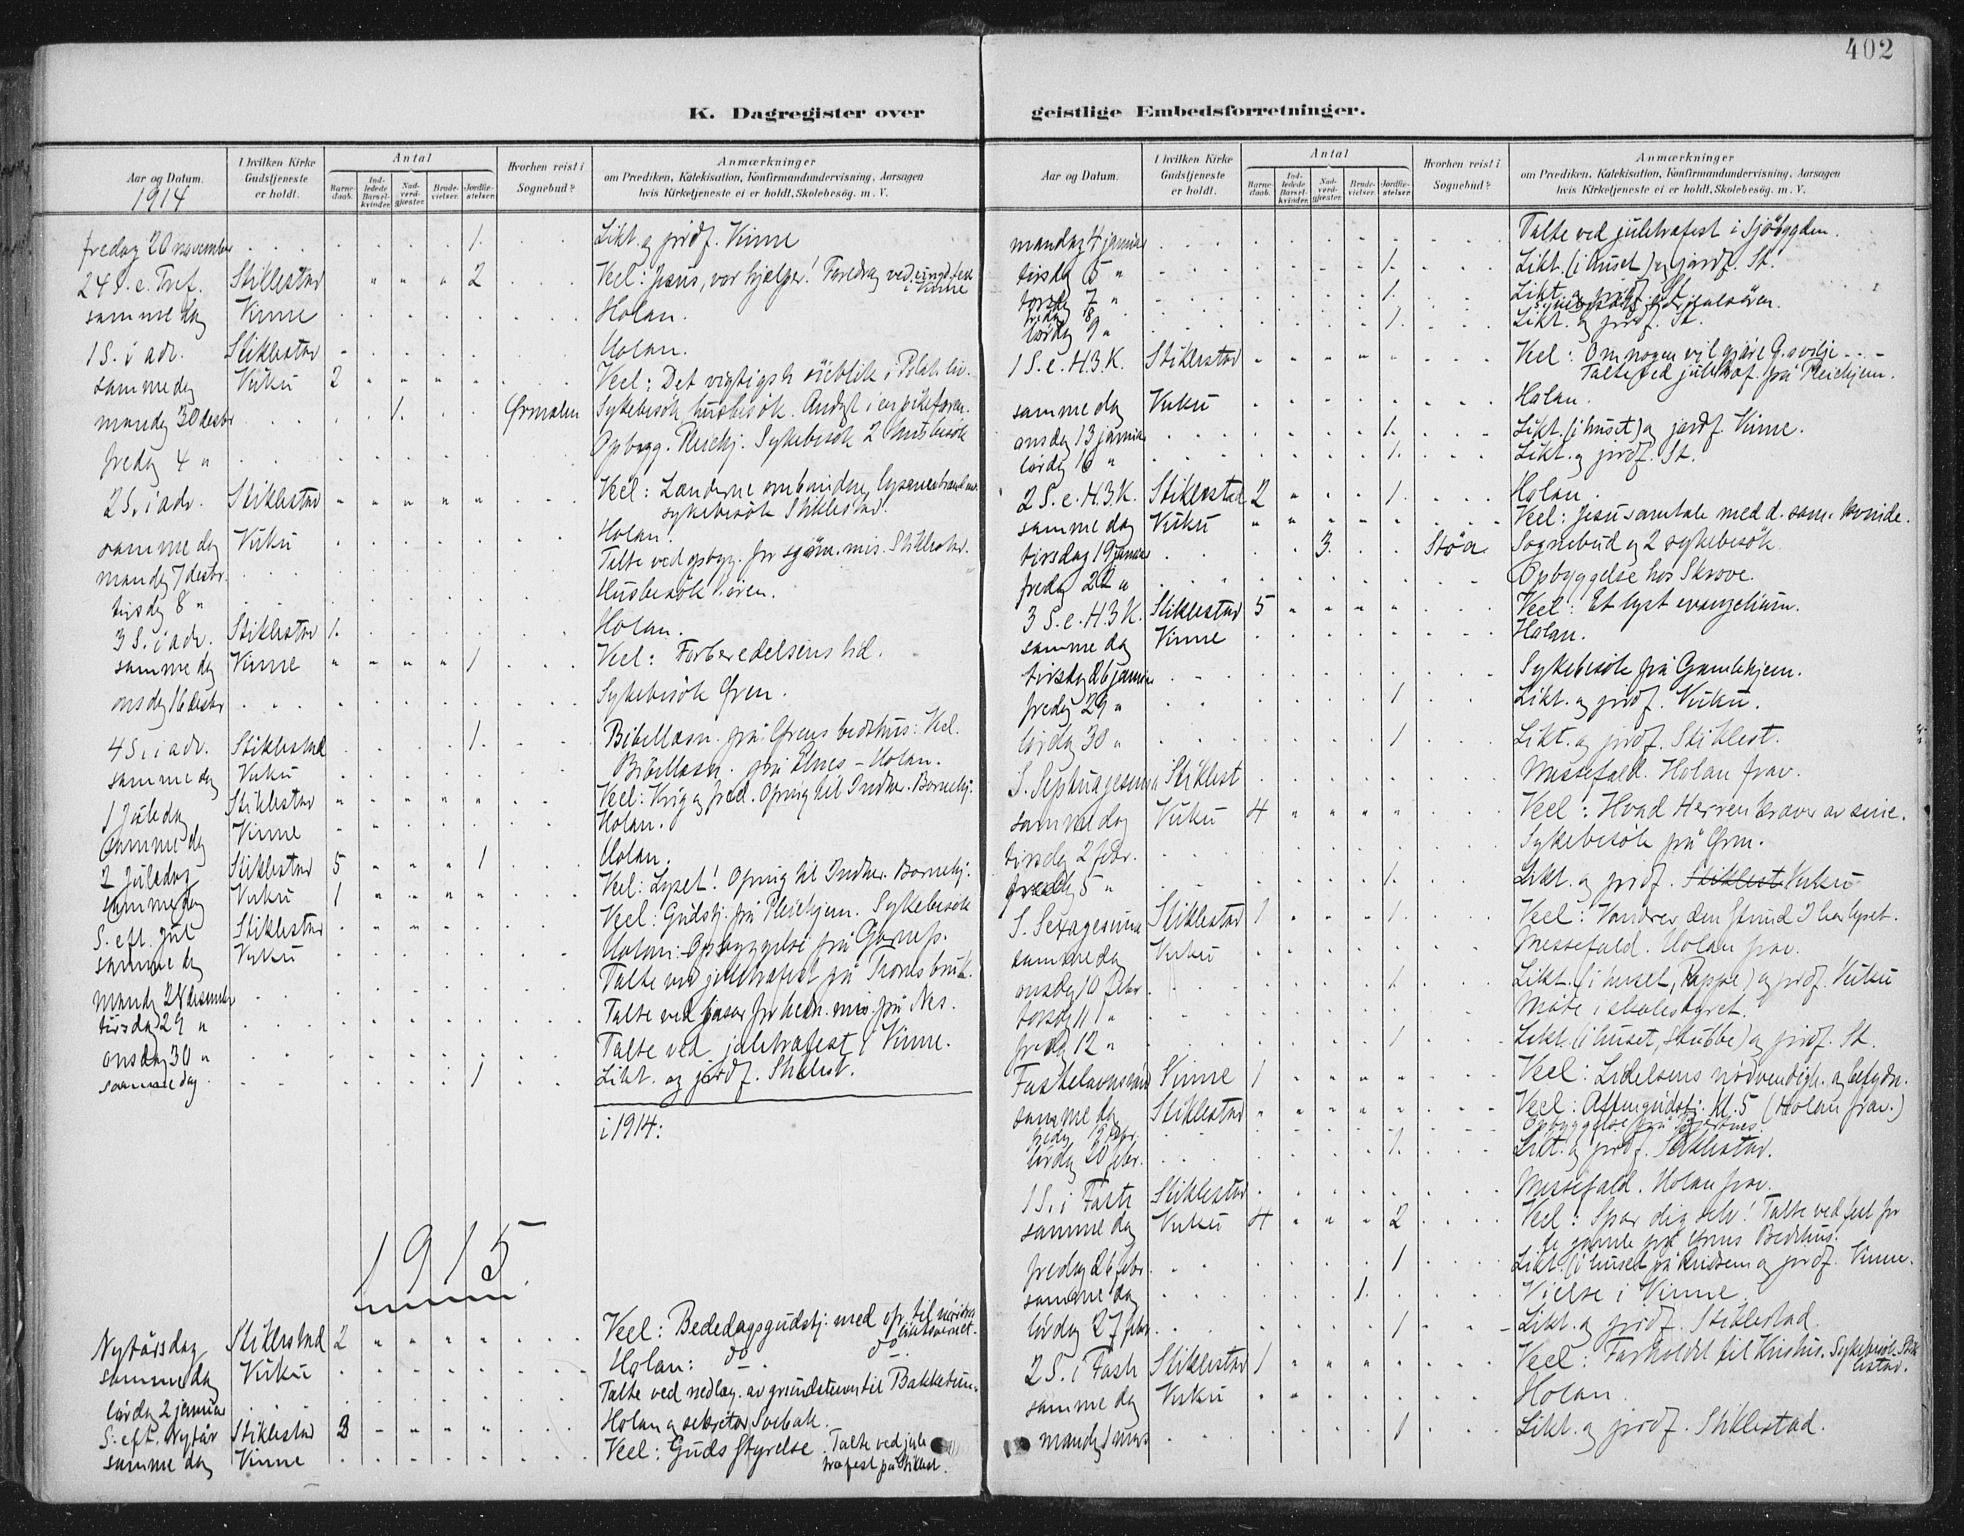 402
K. Dagregister over
Aar og Datum.
1914
I hvilken Kirke Gudstjeneste er holdt.
Antal
Barnedaab.
Indledede Barselkvinder.
Nadverdgjæster.
Brudevielser.
Jordfæstelser.
Hvorhen reist i Sognebud?
Anmærkninger
om Prædiken, Katekisation, Konfirmandundervisning, Aarsagen
hvis Kirketjeneste ei er holdt, Skolebesøg. m. V.
fredag 20 november 1. Likt. og jordf. Vinne
24 S. e. Tref. Stiklestad " " " 2 Veel: Jesus, vor hjælper! Foredrag ved i Vinne
samme dag Vinne Holan.
1 S. i adv. Stiklestad Holan.
samme dag Vuku 2 " " " " Veel: Det vigtigste öieblik i Pilati liv.
mandag 30 1. Ørmelen Sykebesök husbesök.
fredag 4 " Opbygg. Pleiehj. Sykebesök 2 husbesök
2 S. i adv. Stiklestad " " " " " Veel: Lænderne ombundne, lysene
sykebesök Stiklestad.
samme dag Vuku Holan.
mandag 7 Talte ved opbyg. for sjöm. mis. Stiklestad.
tirsdag 8 " Husbesök
3 S. i adv. Stiklestad 1. Holan.
samme dag Vinne " " " " 1 Veel: Forberedelsens tid.
onsdag 16 Sykebesök Ören.
4 S. i adv. Stiklestad 1. Bibellæsn. på Ørens bedehus: Veel.
samme dag Vuku Bibellæsn. på Elnes - Holan.
1 Juledag Stiklestad " " " " " Veel: Krig og fred. Opring til Indher. Barnehj.
samme dag Vinne Holan.
2 Juledag Stiklestad 5 " " " 1 Holan.
samme dag Vuku 1 " " " " Veel: Lyset! Opring til Indher. Barnehj.
S. eft. Jul Stiklestad Veel: Gudstj. på Pleiehjem. Sykebesök
samme dag Vuku Holan: Opbyggelse på
mandag 28 desember Talte ved juletrafest på
tirsdag 29 " Talte ved basar for hedn. mis. på Nes.
onsdag 30 " Talte ved juletrafest i Vinne.
samme dag 1 Likt. og jordf. Stiklest.
i 1914:
1915
Nytårsdag Stiklestad 2 " " " " Veel: Bededagsgudstj. med op. til
samme dag Vuku Holan: do do
lördag 2 januar Talte ved nedlæg. av grundstenen til Bakketun.
S. eft. nytår Stiklestad 3 " " " " Holan og sekretær Svebak.
samme dag Vinne Veel: Guds styrelse. Talte ved jule
trafest på Stiklest.
geistlige Embedsforretninger.
Aar og Datum.
I hvilken Kirke Gudstjeneste er holdt.
Antal
Barnedaab.
Indledede Barselkvinder.
Nadverdgjæster.
Brudevielser.
Jordfæstelser.
Hvorhen reist i Sognebud?
Anmærkninger
om Prædiken, Katekisation, Konfirmandundervisning, Aarsagen
hvis Kirketjeneste ei er holdt, Skolebesøg. m. V.
mandag 4 januar Talte ved juletrafest i Sjöbygden.
tirsdag 5 " 1. Likt. (i huset) og jordf. St.
torsdag 7 " 1. Likt. og jordf. St.
fredag 8
lördag 9 " 1. Likt. og jordf. St.
1 S. e. H.3.K. Stiklestad " " " " " Veel: Om nogen vil gjöre G.s vilje - - -
Talte ved juletraf. på Pleiehjem.
samme dag Vuku Holan.
onsdag 13 januar 1. Likt. (i huset) og jordf. Vinne.
lördag 16 " 1. Likt. og jordf. St.
2 S. e. H.3.K. Stiklestad 2 " 1. Holan.
samme dag Vuku " " " " " Veel: Jesu samtale med d. sam. kvinde.
tirsdag 19 januar 3. Støa. Sognebud og 2 sykebesök.
fredag 22 " Opbyggelse hos Skrove.
3 S. e. H.3.K. Stiklestad 5 " " " " Veel: Et lyst evangelium.
samme dag Vinne Holan.
tirsdag 26 januar Sykebesök på Gamlehjem.
fredag 29 " 1 Likt. og jordf. Vuku.
lördag 30 " 1 Likt. og jordf. Stiklest.
S. Septuagesima Stiklest Messefald. Holan frav.
samme dag Vuku 4 " " " " Veel: Hvad Herren kræver av sine.
tirsdag 2 febr. Sykebesök på Ören.
fredag 5 " 1. Likt. og jordf. Stiklest Vuku
S. Sexagesima Stiklestad 1 " 1. Veel: Vandrer den stund I har lyset.
samme dag Vuku Messefald. Holan frav.
onsdag 10 febr. 1. Likt. (i huset, Rappe) og jordf. Vuku
torsdag 11 " Möte i skolestyret.
fredag 12 " 1 Likt. (i huset, Stubbe) og jordf. St.
Fastelavnssönd Vinne 1 " " " " Veel: Lidelsens nödvendigh. og betydn.
samme dag Stiklestad " " " " " Veel: Aftengudstj. kl. 5 (Holan frav.)
fredag 19 febr. Opbyggelse på
lördag 20 febr. 1. Likt. og jordf. Stiklestad.
1 S. i Faste Stiklestad Messefald. Holan frav.
samme dag Vuku 4 " " " 2 Veel: Spar dig selv! Talte ved fest for
de gamle på Ørens Bedehus.
fredag 26 febr. 1 Likt. (i huset på og jordf. Vinne.
samme dag 1. Vielse i Vinne
lördag 27 febr. 1 Likt. og jordf. Stiklestad.
2 S. i Faste Stiklestad 1 " " " " Veel: Forholdet til Kristus. Sykebesök Stik
lestad.
samme dag Vuku Holan.
mandag 1 mars 1 Likt. og jordf. Stiklestad.